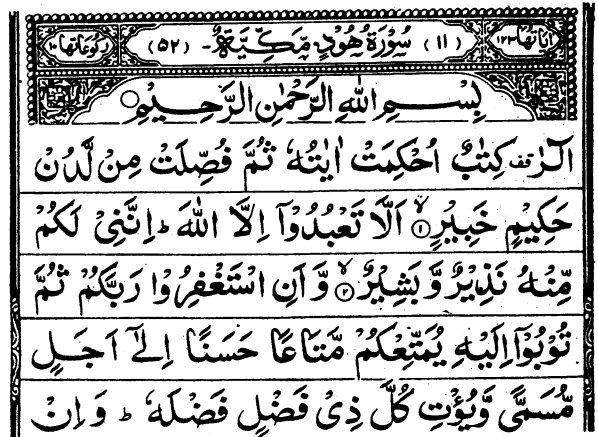 اٰیَاتُهَا ۱۲۳ (۱۱) سُوْرَةُ هُوْدٍ مَكِّیَّةٌ (۵۲) رُكُوْعَاتُهَا ۱۰
بِسْمِ اللهِ الرَّحْمٰنِ الرَّحِیْمِ ○
الٓرٰ قف كِتٰبٌ اُحْكِمَتْ اٰیٰتُهٗ ثُمَّ فُصِّلَتْ مِنْ لَّدُنْ
حَكِیْمٍ خَبِیْرٍ ۙ﴿۱﴾ اَلَّا تَعْبُدُوْۤا اِلَّا اللهَ ؕ اِنَّنِیْ لَكُمْ
مِّنْهُ نَذِیْرٌ وَّ بَشِیْرٌ ۙ﴿۲﴾ وَّ اَنِ اسْتَغْفِرُوْا رَبَّكُمْ ثُمَّ
تُوْبُوْۤا اِلَیْهِ یُمَتِّعْكُمْ مَّتَاعًا حَسَنًا اِلٰۤی اَجَلٍ
مُّسَمًّی وَّ یُؤْتِ كُلَّ ذِیْ فَضْلٍ فَضْلَهٗ ؕ وَ اِنْ